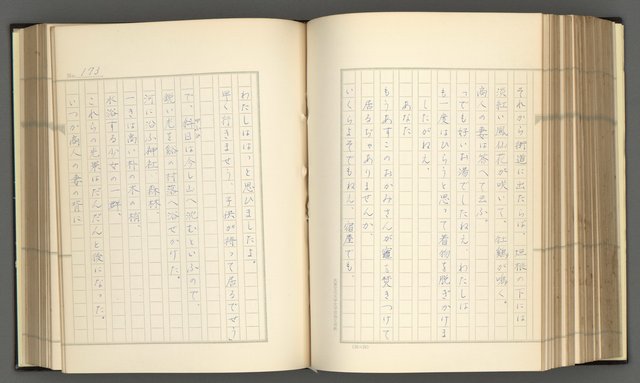 それから街道に出たらば、垣根の下には
淡紅い鳳仙花が咲いて、紅鶏が鳴く。
商人の妻は答へて云ふ。
っても好いお湯でしたねえ、わたしは
も一度はひらうと思って着物を脱ぎかけま
したがねえ、
あなた
もうあすこのおかみさんが竈を焚きつけて
居るぢゃありませんか、
いくらよそでもねえ、宿屋でも、
No. 173
わたしははっと思ひましたよ。
早く行きませう、子供が待って居るでせう
で、
日は今し山へ沈むといふので、
鋭い光を谿の村落へ浴せかけた。
河に沿ふ神社、森林、
一きは高い杉の木の梢、
水浴する少女の一群、
これらの光景はだんだんと後になった。
いつか商人の妻の背に